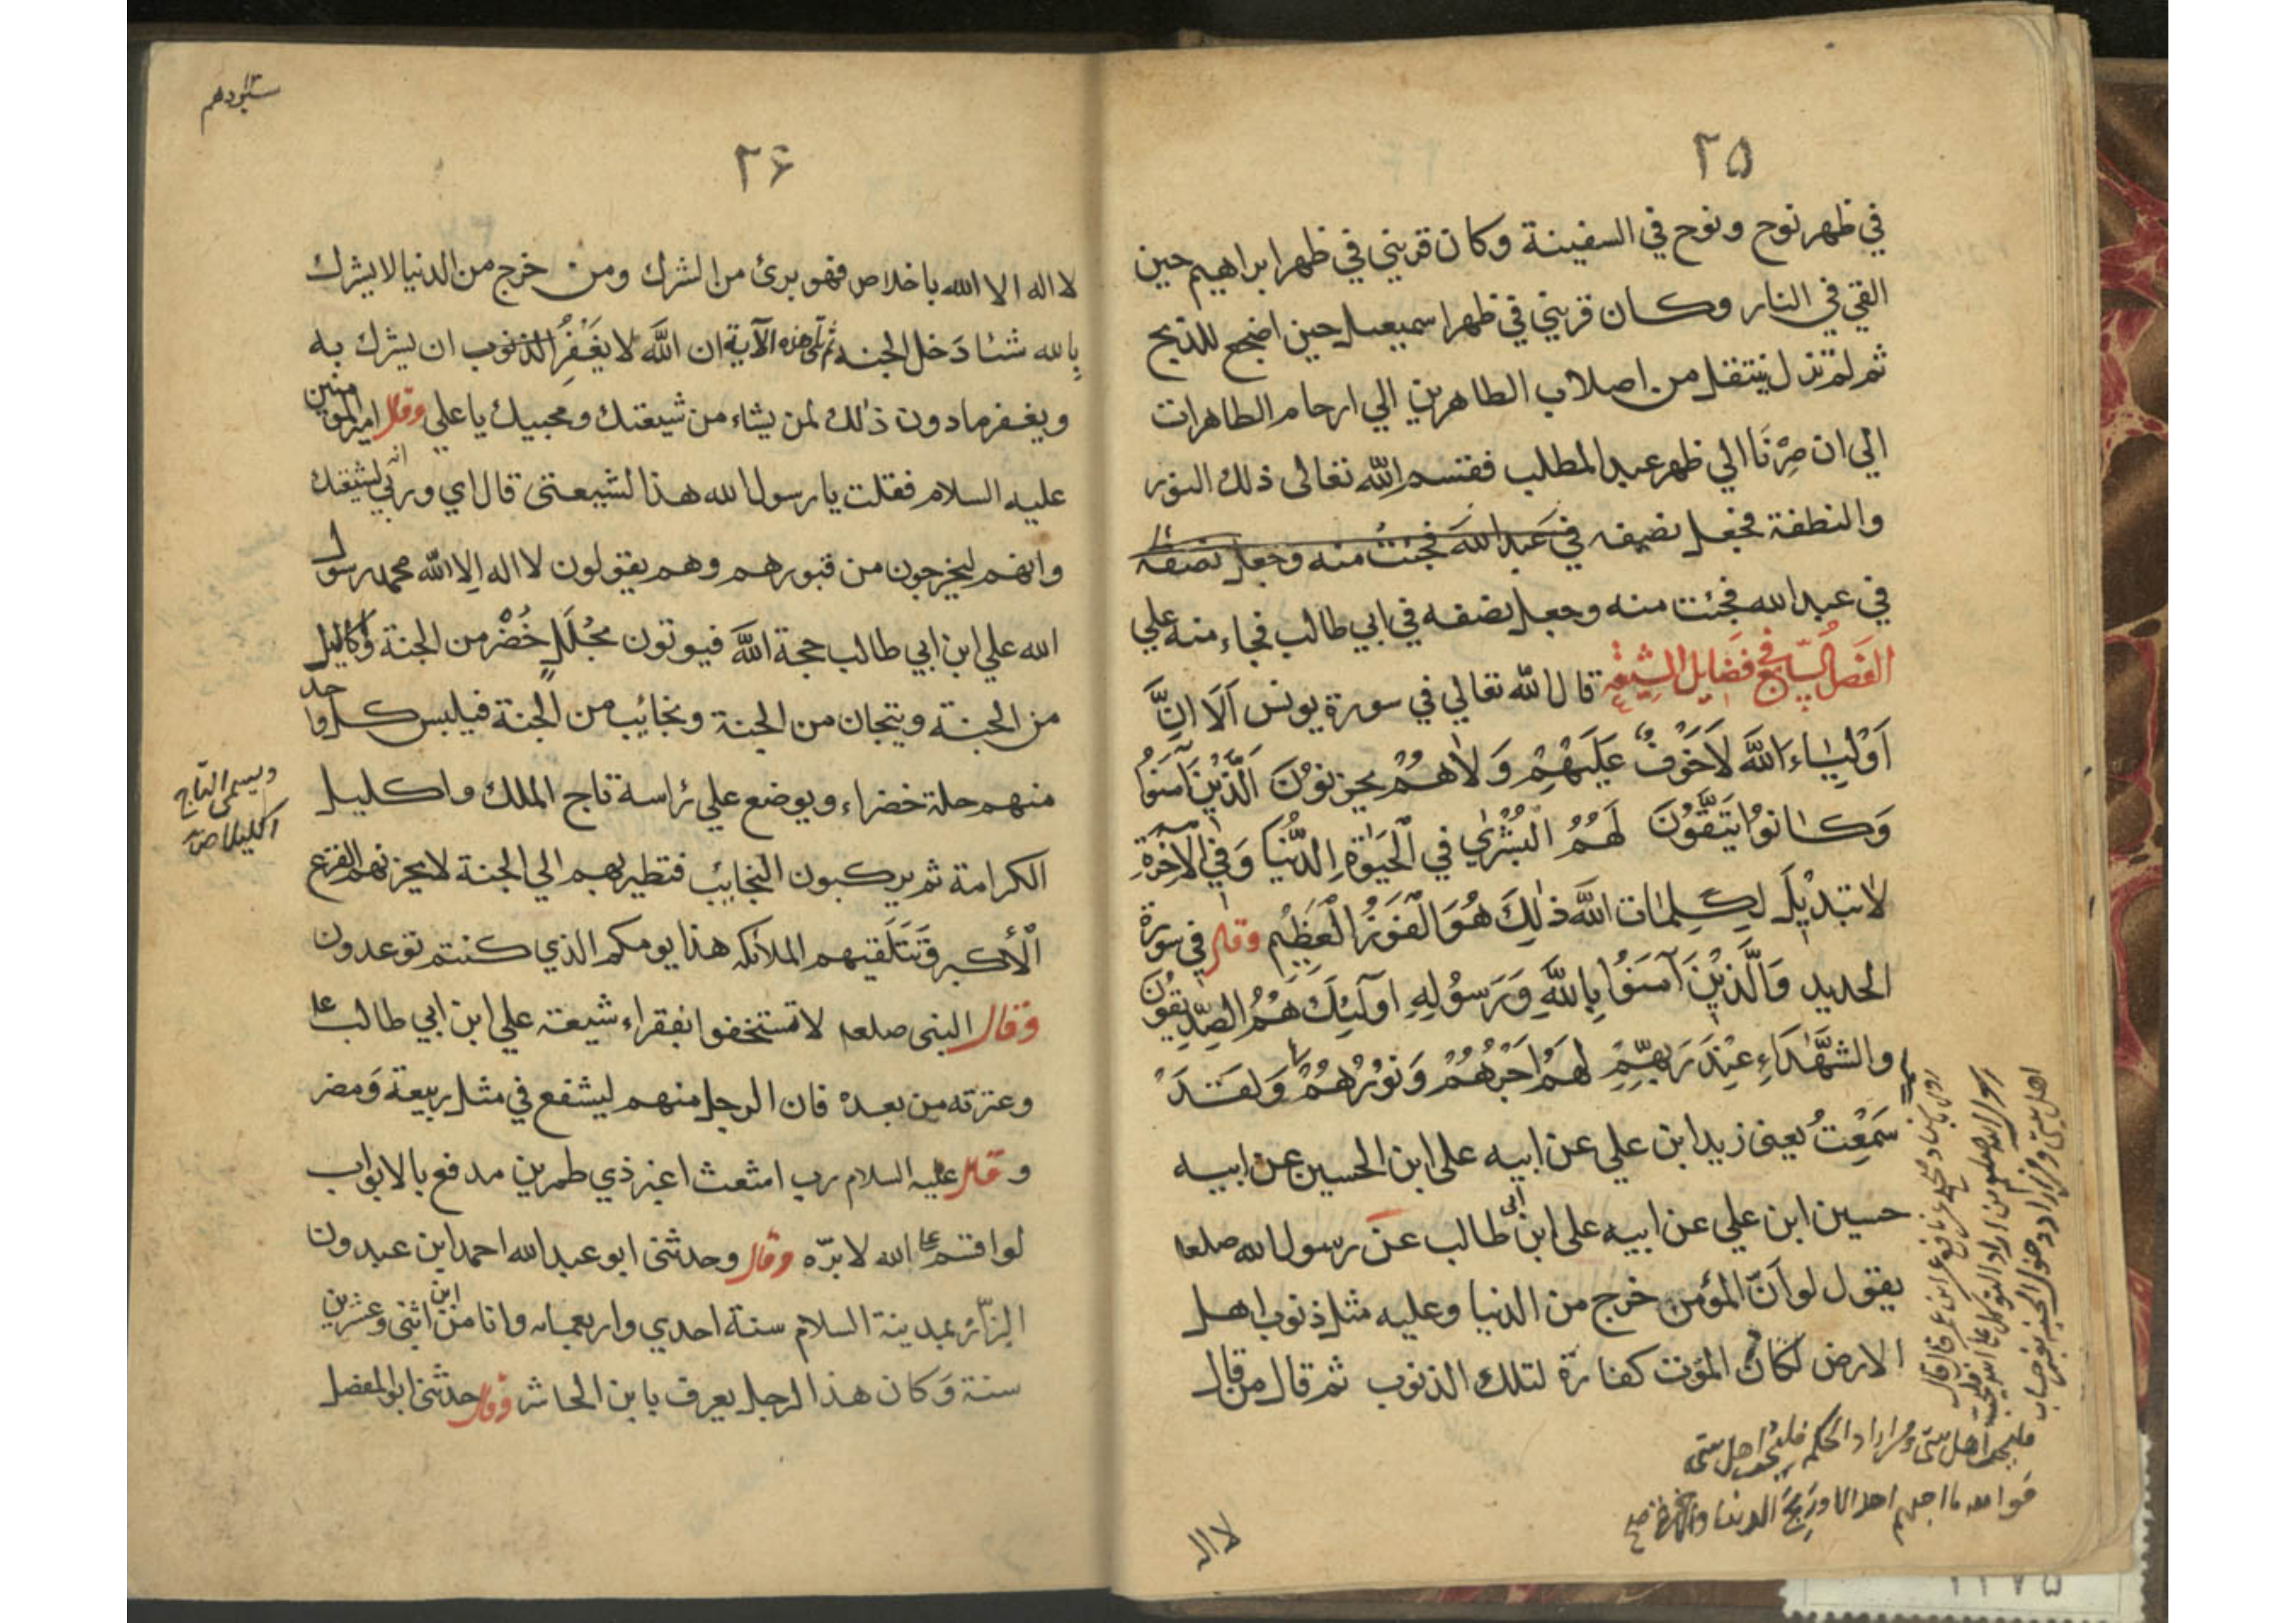 ٢٥
في ظهر نوح ونوح في السفينة وكان قريني في ظهر ابراهيم حين
القي في النار وكان قريني في ظهر اسمعيل حين اضجع للذبح
ثم لم تزل ينتقل من اصلاب الطاهرين الي ارحام الطاهرات
الي ان صِرْنَا الي ظهر عبد المطلب فقسم الله تعالى ذلك النور
والنطفة فجعل نصفه في عبد الله فجئت منه وجعل نصفه
في عبد الله فجئت منه وجعل نصفه في ابي طالب فجاء منه علي
الفصل السابع في فضايل الشيعة قال الله تعالي في سورة يونس اَلَا اِنَّ
اَوْلِيٰاءَ اللّهَ لاَخَوْفٌ عَلَيْهِمْ وَلاٰهُمْ يحزنوُنَ اَلَّذْيِنَ آمَنوُا
وَكانوُا يَتَّقُوُنَ لَهُمُ الْبُشْرٰي في الْحَيٰوةِ الدُّنْيٰا وَفي الآخِرَةِ
لاٰتبديْلَ لِكِلِمٰات اللَّه ذٰلِكَ هُوَ الْفَوَزُ الْعَظِيْم وقال في سورة
الحديد وَالَّذيْنَ آمَنوُا بِاللَّهِ وَرَسوُلِهِ اولَئِكَ هُمُ الصِّدّيقوُنَ
والشهَّدَاءِ عِنْدَ رَبهِّمِ لهَمْ اَجْرُهُمْ وَنوُرُهُمْ وَلقَدَ
سَمْعِتُ يعنى زيد ابن علي عن ابيه على ابن الحسين عن ابيه
حسين ابن علي عن ابيه على ابن ابى طالب عن رسول الله صلعم
يقول لو انّ المؤمن خرج من الدنيا وعليه مثل ذنوب اهل
الارض لكان المؤت كفارة لتلك الذنوب ثم قال من قال
رسول الله صلعم من اراد التوكل على الله فليحب
اهل بيتى ومن اراد دخول الجنة بغير حساب
فليحب اهل بيتى ومن اراد الحكمة فليحب اهل بيتى
فوالله ما احبهم احد الا وربح الدنيا والآخرة صح
لا اله
٢۶
لا اله الا الله باخلاص فهو برئ من الشرك ومن خرج من الدنيا لا يشرك
بالله شئا دَخل الجنه ثم تلى هذه الآية ان اللَّه لا يَغْفِرُ الذنوب ان يشرك به
ويغفر مادون ذٰلك لمن يشاء من شيعتك ومحبيك يا علي وقال امير المؤمنين
عليه السلام فقلت يا رسول الله هذا لشيعتى قال اي وربي انه لشيعتك
وانهم ليخرجون من قبورهم وهم يقولون لا اله الا اللّه محمد رسول
الله علي ابن ابي طالب حجة اللَّه فيوتون بحُلَلٍ خُضْر من الجنة واكاليل
من الجنة وتيجان من الجنة ونجائب من الجنة فيلبس كل واحد
منهم حلة خضراء ويوضع علي رٔاسة تاج الملك واكليل
الكرامة ثم يركبون النجايب فتطير بهم الي الجنة لا يحزنهم الفزع
الْأكبر وَتَتَلَقيهم الملائكه هذا يومكم الذي كنتم توعدون
وقال النبى صلعم لا تستخفوا بفقراء شيعة علي ابن ابي طالب ع
وعترته من بعده فان الرجل منهم ليشفع في مثل ربيعة وَمضر
وقال عليه السلام رب امثعث اغبر ذي طمرين مدفع بالابواب
لو اقسم على الله لابرّه وقال وحدثنى ابو عبد الله احمد ابن عبدون
البزّاز بمدينة السلام سنة احدي واربعماىه وانا من ابن اثنى وعشرين
سنة وَكان هذا الرجل يعرف بابن الحاشر وقال حدثنى ابو المفضل
ويسمى التاج
اكليلا صح